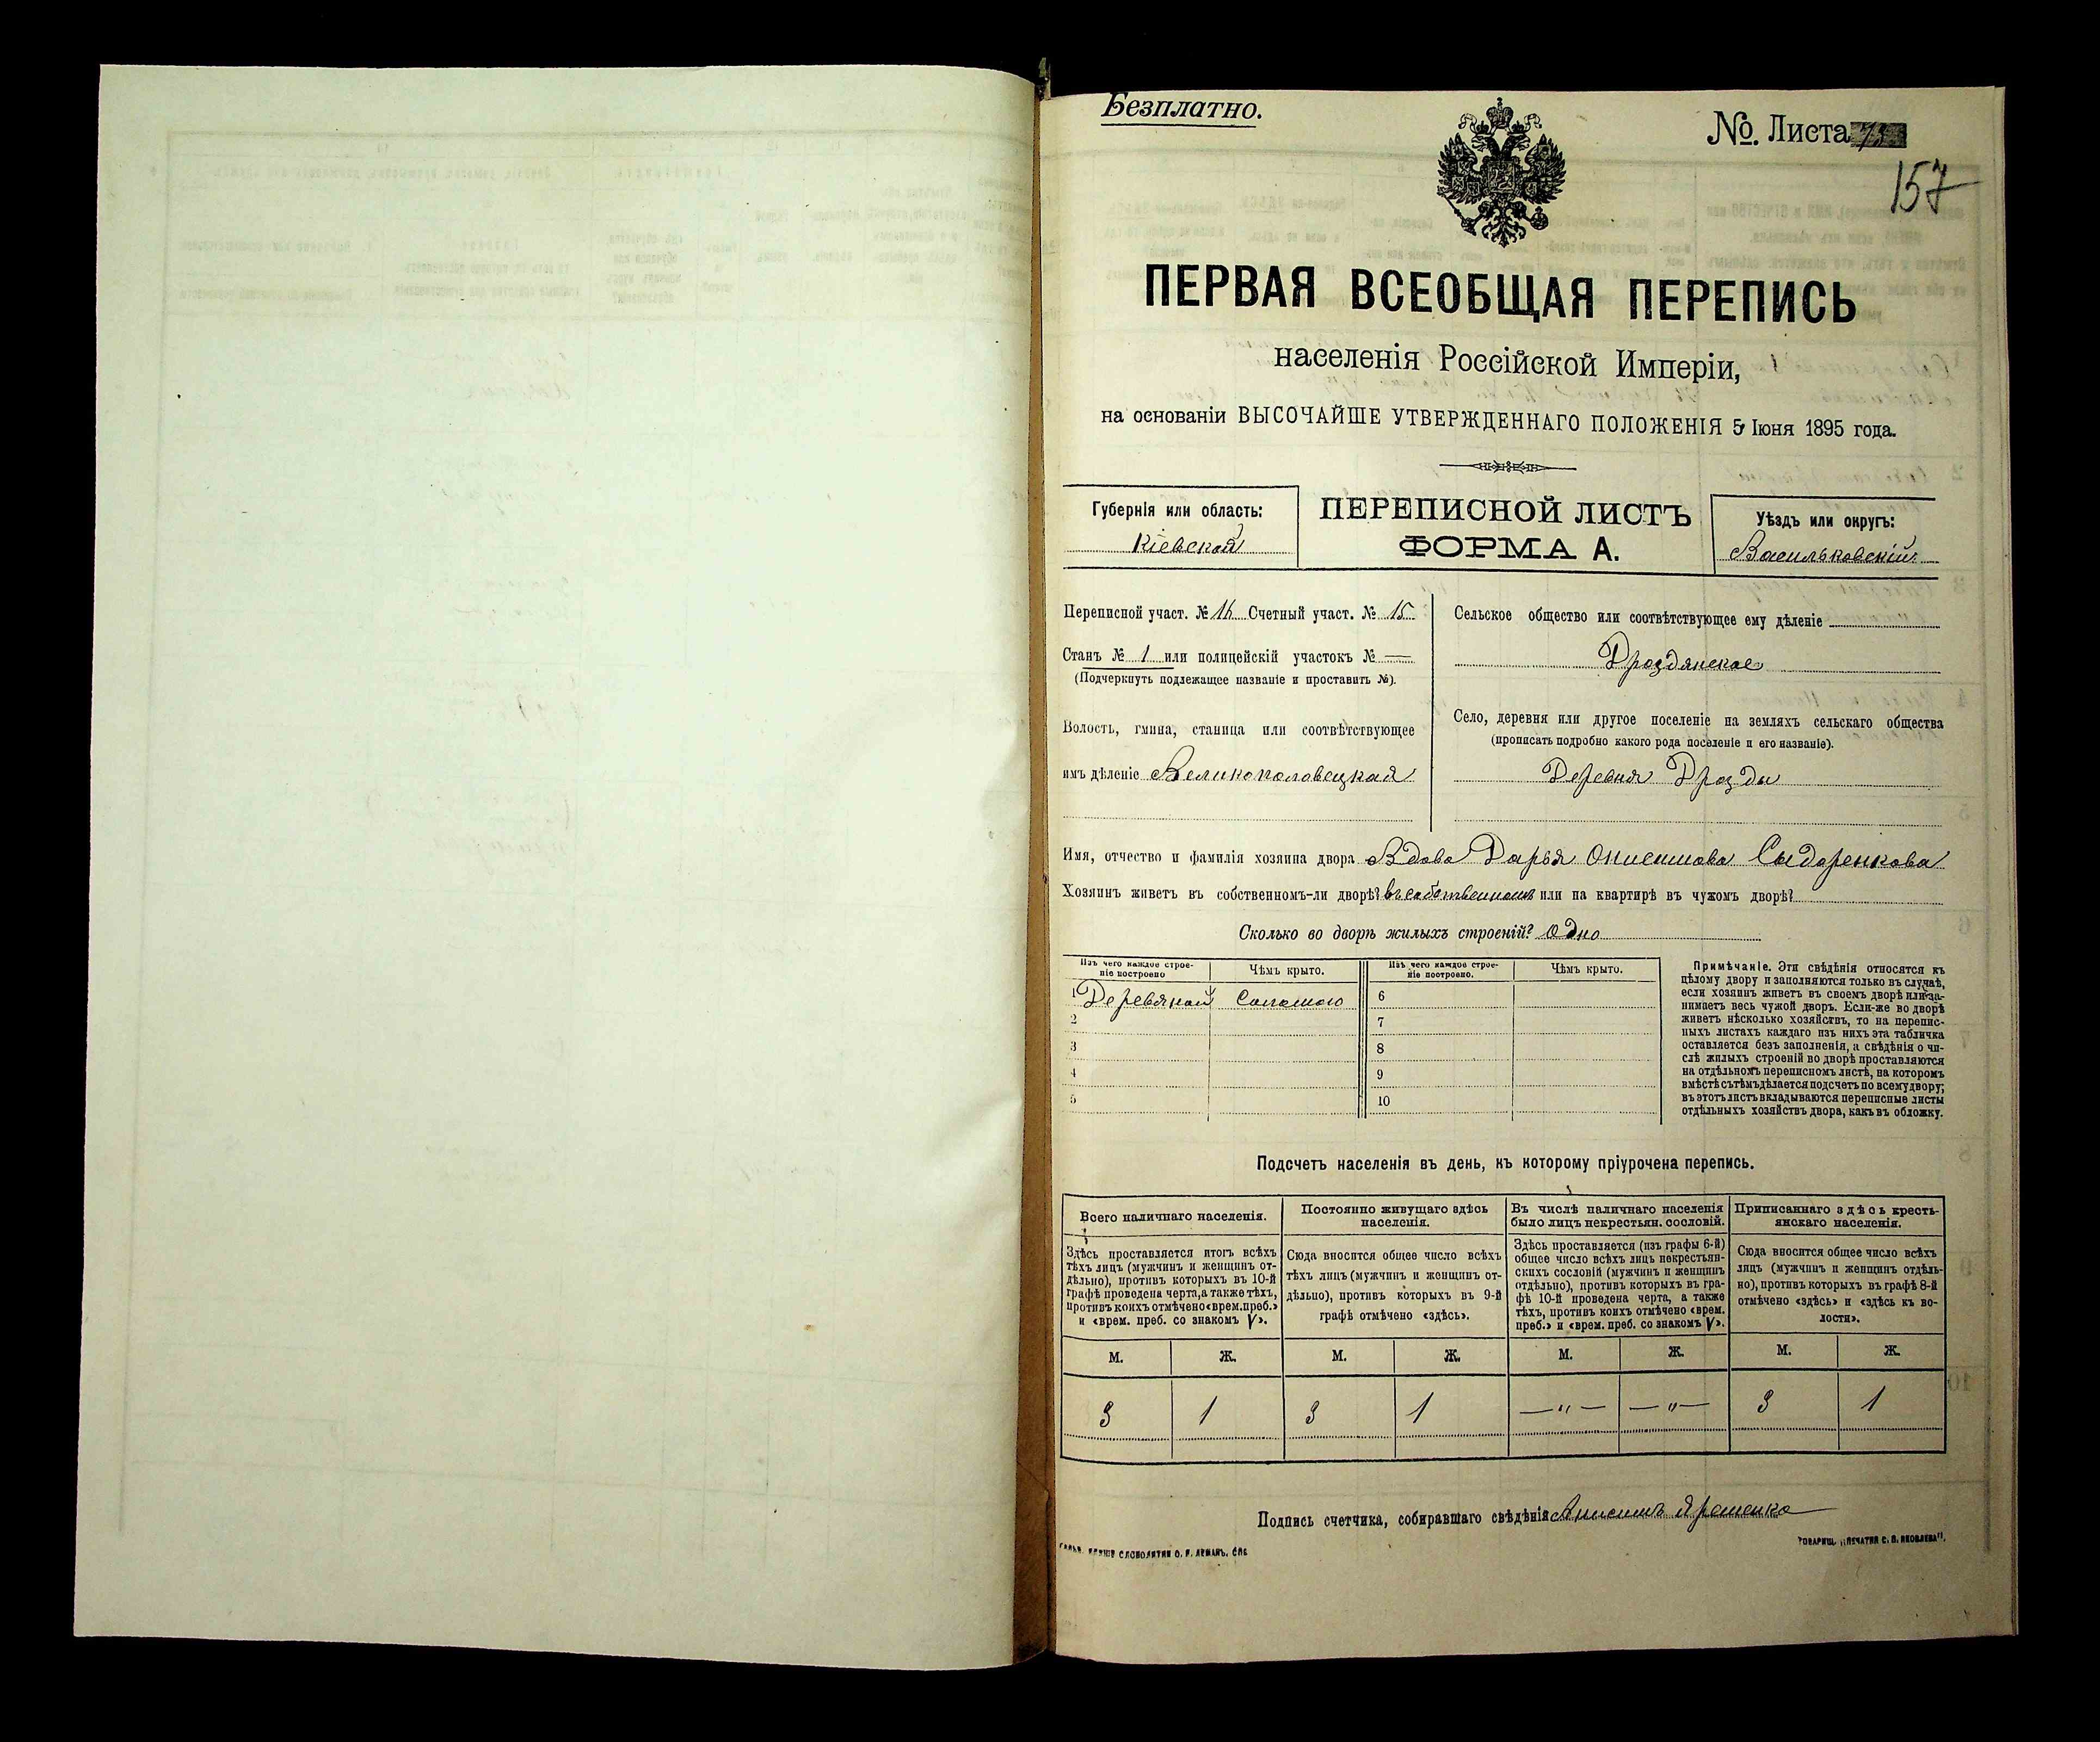 Безплатно.
№. Листа 73
157
ПЕРВАЯ ВСЕОБЩАЯ ПЕРЕПИСЬ
населенія Россійской Имперіи,
на основаніи ВЫСОЧАЙШЕ УТВЕРЖДЕННАГО ПОЛОЖЕНІЯ 5 Іюня 1895 года.
Губернія или область:
Кіевской
ПЕРЕПИСНОЙ ЛИСТЪ
ФОРМА А.
Уѣздъ или округъ:
Васильковскій
Переписной участ. № 16 Счетный участ. № 15
Станъ № 1 или полицейскій участокъ № —
(Подчеркнуть подлежащее названіе и проставить №).
Волость, гмина, станица или соотвѣтствующее
имъ дѣленіе Великополовецкая
Сельское общество или соотвѣтствующее ему дѣленіе
Дроздянское
Село, деревня или другое поселеніе на земляхъ сельскаго общества
(прописать подробно какого рода поселеніе и его названіе).
Деревня Дрозды
Имя, отчество и фамилія хозяина двора Вдова Дарья Онисимова Сыдоренкова
Хозяинъ живетъ въ собственномъ-ли дворѣ? въ собственномъ или на квартирѣ въ чужомъ дворѣ?
Сколько во дворѣ жилыхъ строеній? Одно
Изъ чего каждое строе-
ніе построено
Чѣмъ крыто.
Изъ чего каждое строе-
ніе построено.
Чѣмъ крыто.
1 Деревяной Соломою 6
2 7
3 8
4 9
5 10
Примѣчаніе. Эти свѣдѣнія относятся къ
цѣлому двору и заполняются только въ случаѣ,
если хозяинъ живетъ въ своемъ дворѣ или за-
нимаетъ весь чужой дворъ. Если-же во дворѣ
живетъ нѣсколько хозяйствъ, то на перепис-
ныхъ листахъ каждаго изъ нихъ эта табличка
оставляется безъ заполненія, а свѣдѣнія о чи-
слѣ жилыхъ строеній во дворѣ проставляются
на отдѣльномъ переписномъ листѣ, на которомъ
вмѣстѣ съ тѣмъ дѣлается подсчетъ по всему двору;
въ этотъ листъ вкладываются переписные листы
отдѣльныхъ хозяйствъ двора, какъ въ обложку.
Подсчетъ населенія въ день, къ которому пріурочена перепись.
Всего наличнаго населенія.
Здѣсь проставляется итогъ всѣхъ
тѣхъ лицъ (мужчинъ и женщинъ от-
дѣльно), противъ которыхъ въ 10-й
графѣ проведена черта, а также тѣхъ,
противъ коихъ отмѣчено «врем. преб.»
и «врем. преб. со знакомъ V».
Постоянно живущаго здѣсь
населенія.
Сюда вносится общее число всѣхъ
тѣхъ лицъ (мужчинъ и женщинъ от-
дѣльно), противъ которыхъ въ 9-й
графѣ отмѣчено «здѣсь».
Въ числѣ наличнаго населенія
было лицъ некрестьян. сословій.
Здѣсь проставляется (изъ графы 6-й)
общее число всѣхъ лицъ некрестьян-
скихъ сословій (мужчинъ и женщинъ
отдѣльно), противъ которыхъ въ гра-
фѣ 10-й проведена черта, а также
тѣхъ, противъ коихъ отмѣчено «врем.
преб.» и «врем. преб. со знакомъ V».
Приписаннаго здѣсь кресть-
янскаго населенія.
Сюда вносится общее число всѣхъ
лицъ (мужчинъ и женщинъ отдѣль-
но), противъ которыхъ въ графѣ 8-й
отмѣчено «здѣсь» и «здѣсь къ во-
лости».
М. Ж. М. Ж. М. Ж. М. Ж.
3 1 3 1 —"— —"— 3 1
Подпись счетчика, собиравшаго свѣдѣнія Анисимъ Яременко
ТОВАРИЩ. „ПЕЧАТНЯ С. П. ЯКОВЛЕВА".